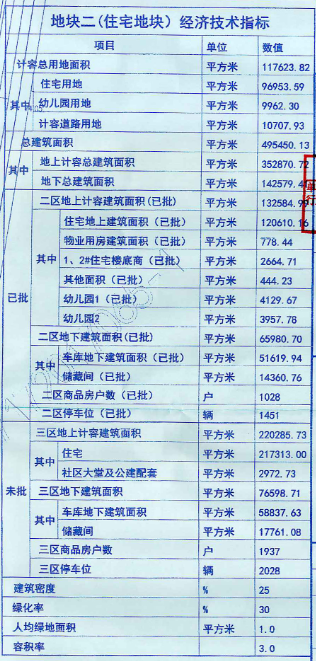 地块二(住宅地块) 经济技术指标
项目 单位 数值
计容总用地面积 平方米 117623.82
其中 住宅用地 平方米 96953.59
幼儿园用地 平方米 9962.30
计容道路用地 平方米 10707.93
总建筑面积 平方米 495450.13
其中 地上计容总建筑面积 平方米 352870.72
地下总建筑面积 平方米 142579.41
已批 二区地上计容建筑面积(已批) 平方米 132584.99
其中 住宅地上建筑面积(已批) 平方米 120610.16
物业用房建筑面积(已批) 平方米 778.44
1、2#住宅楼底商(已批) 平方米 2664.71
其他面积(已批) 平方米 444.23
幼儿园1(已批) 平方米 4129.67
幼儿园2 平方米 3957.78
二区地下建筑面积(已批) 平方米 65980.70
其中 车库地下建筑面积(已批) 平方米 51619.94
储藏间(已批) 平方米 14360.76
二区商品房户数(已批) 户 1028
二区停车位(已批) 辆 1451
未批 三区地上计容建筑面积 平方米 220285.73
其中 住宅 平方米 217313.00
社区大堂及公建配套 平方米 2972.73
三区地下建筑面积 平方米 76598.71
其中 车库地下建筑面积 平方米 58837.63
储藏间 平方米 17761.08
三区商品房户数 户 1937
三区停车位 辆 2028
建筑密度 % 25
绿化率 % 30
人均绿地面积 平方米 1.0
容积率 3.0